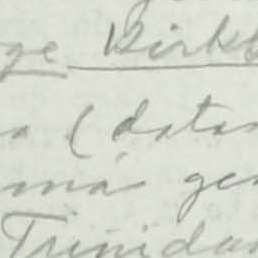 ge Birkb
a (datas
mas gen
Trinidad